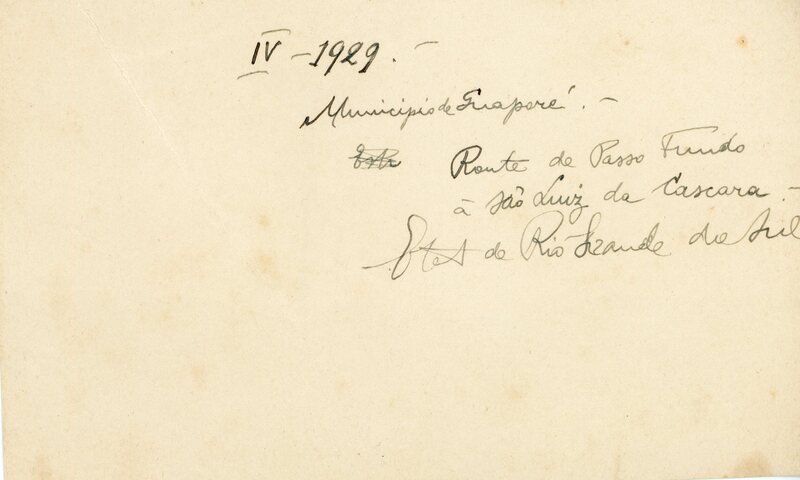 IV - 1929. -
Municipio de Guaporé. -
Route de Passo Fundo
à São Luiz da Cascara. -
Etat de Rio Grande do Sul